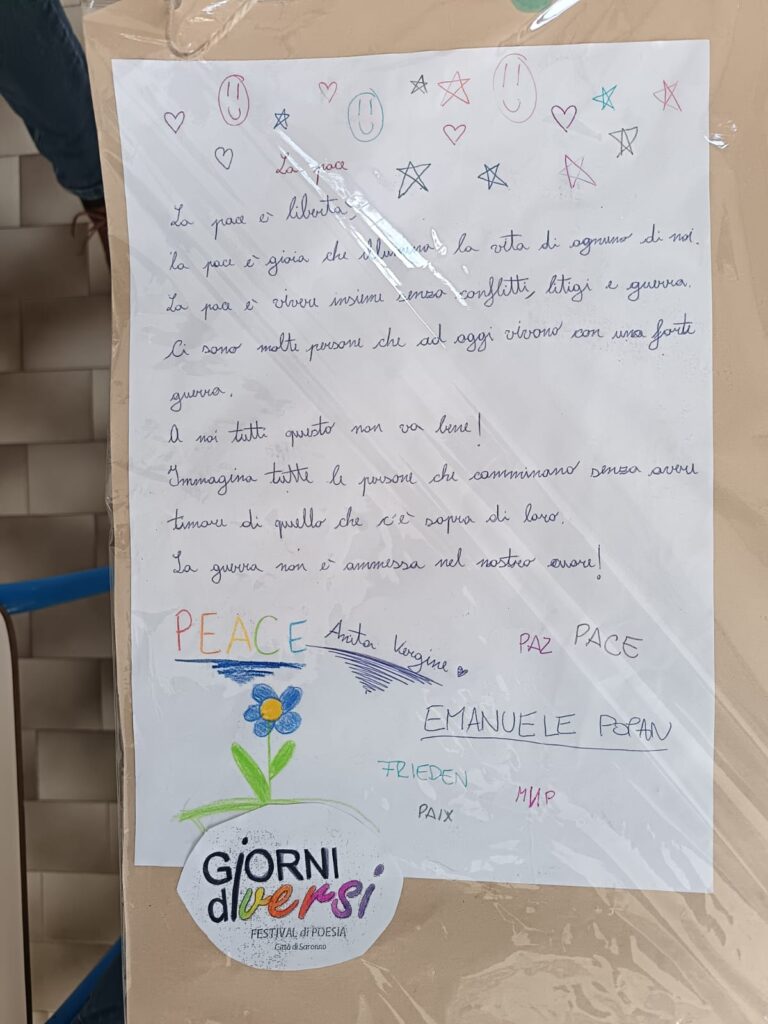 La pace
La pace è libertà,
la pace è gioia che illumina la vita di ognuno di noi.
La pace è vivere insieme senza conflitti, litigi e guerra.
Ci sono molte persone che ad oggi vivono con una forte
guerra.
A noi tutti questo non va bene!
Immagina tutte le persone che camminano senza avere
timore di quello che c'è sopra di loro.
La guerra non è ammessa nel nostro cuore!
PEACE Anita Vergine
PAZ PACE
EMANUELE POPAN
FRIEDEN
PAIX
МИР
GiORNI
diversi
FESTIVAL di POESIA
Città di Saronno